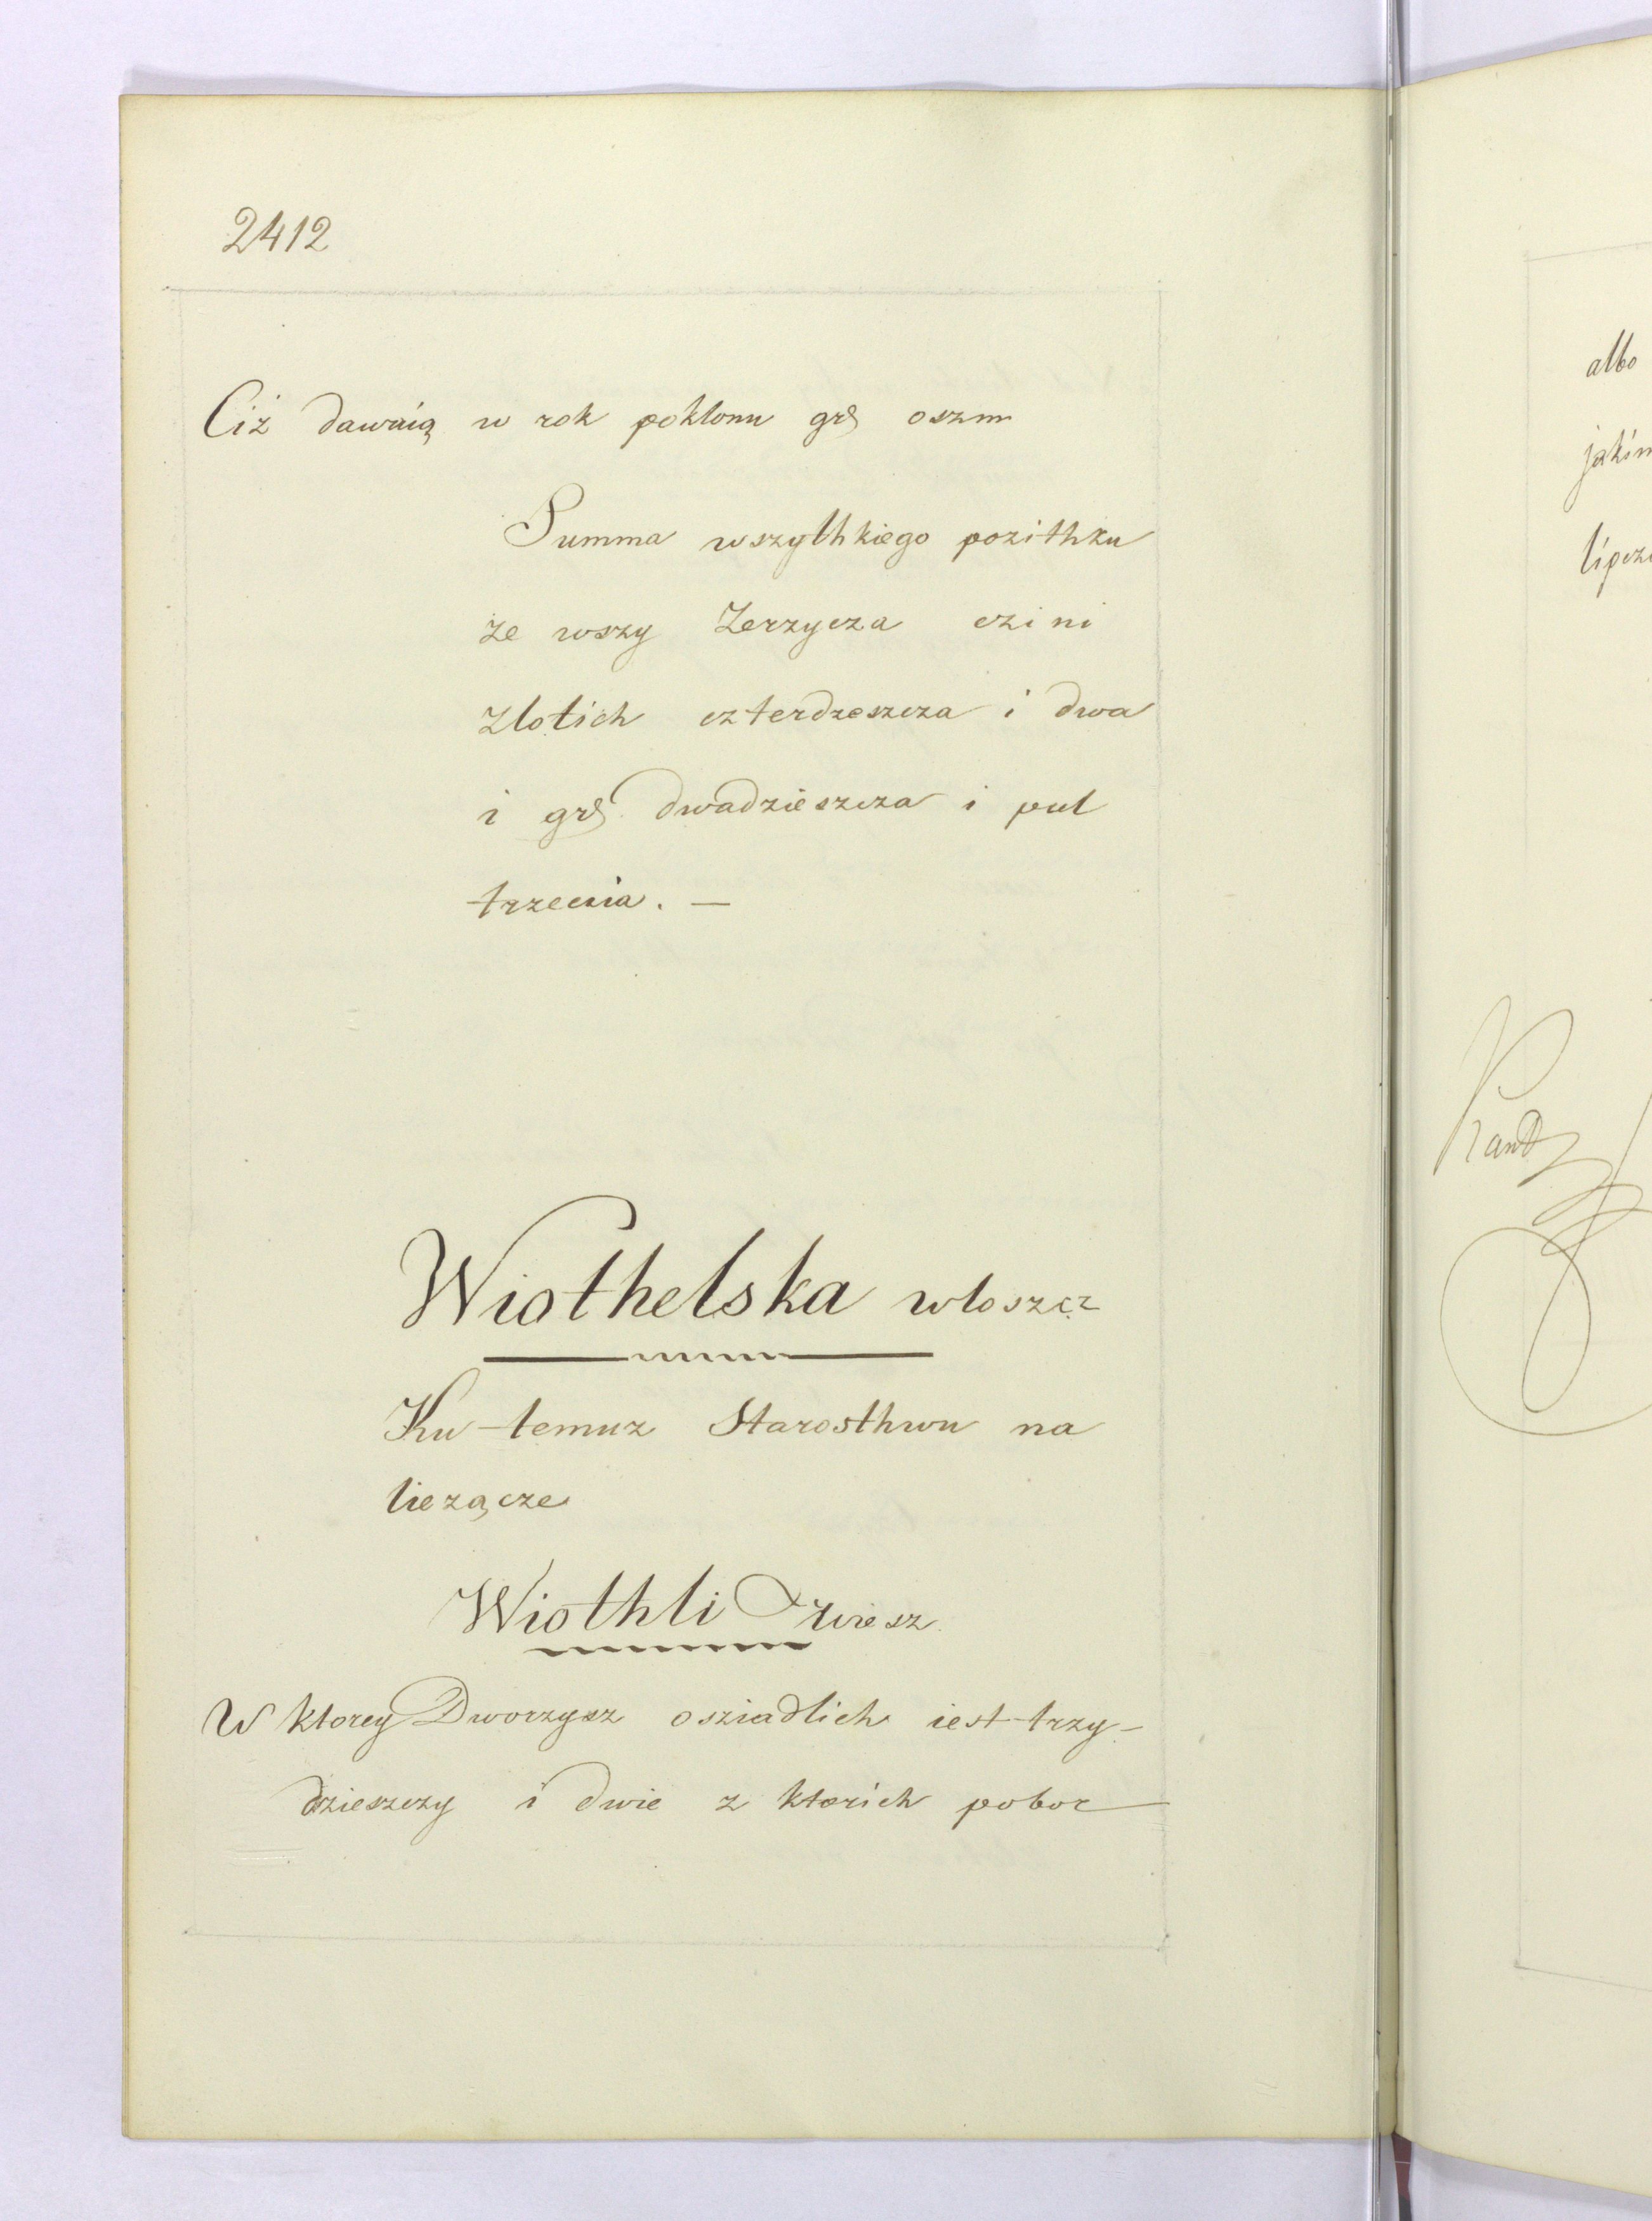 2412
Ciż dawaią w rok poklonu grs oszm
Summa wszythkiego pozithku
ze wszy Zerzycza czini
zlotich czterdzeszcza i dwa
i grs dwadzieszcza i pul
trzeczia. —
Wiothelska wloszcz
Ku temuz Starosthwu na
liezącze
Wiothli wiesz
W ktorey Dworzysz osziadlich iest trzy-
dzieszczy i dwie z ktorich pobor
albo